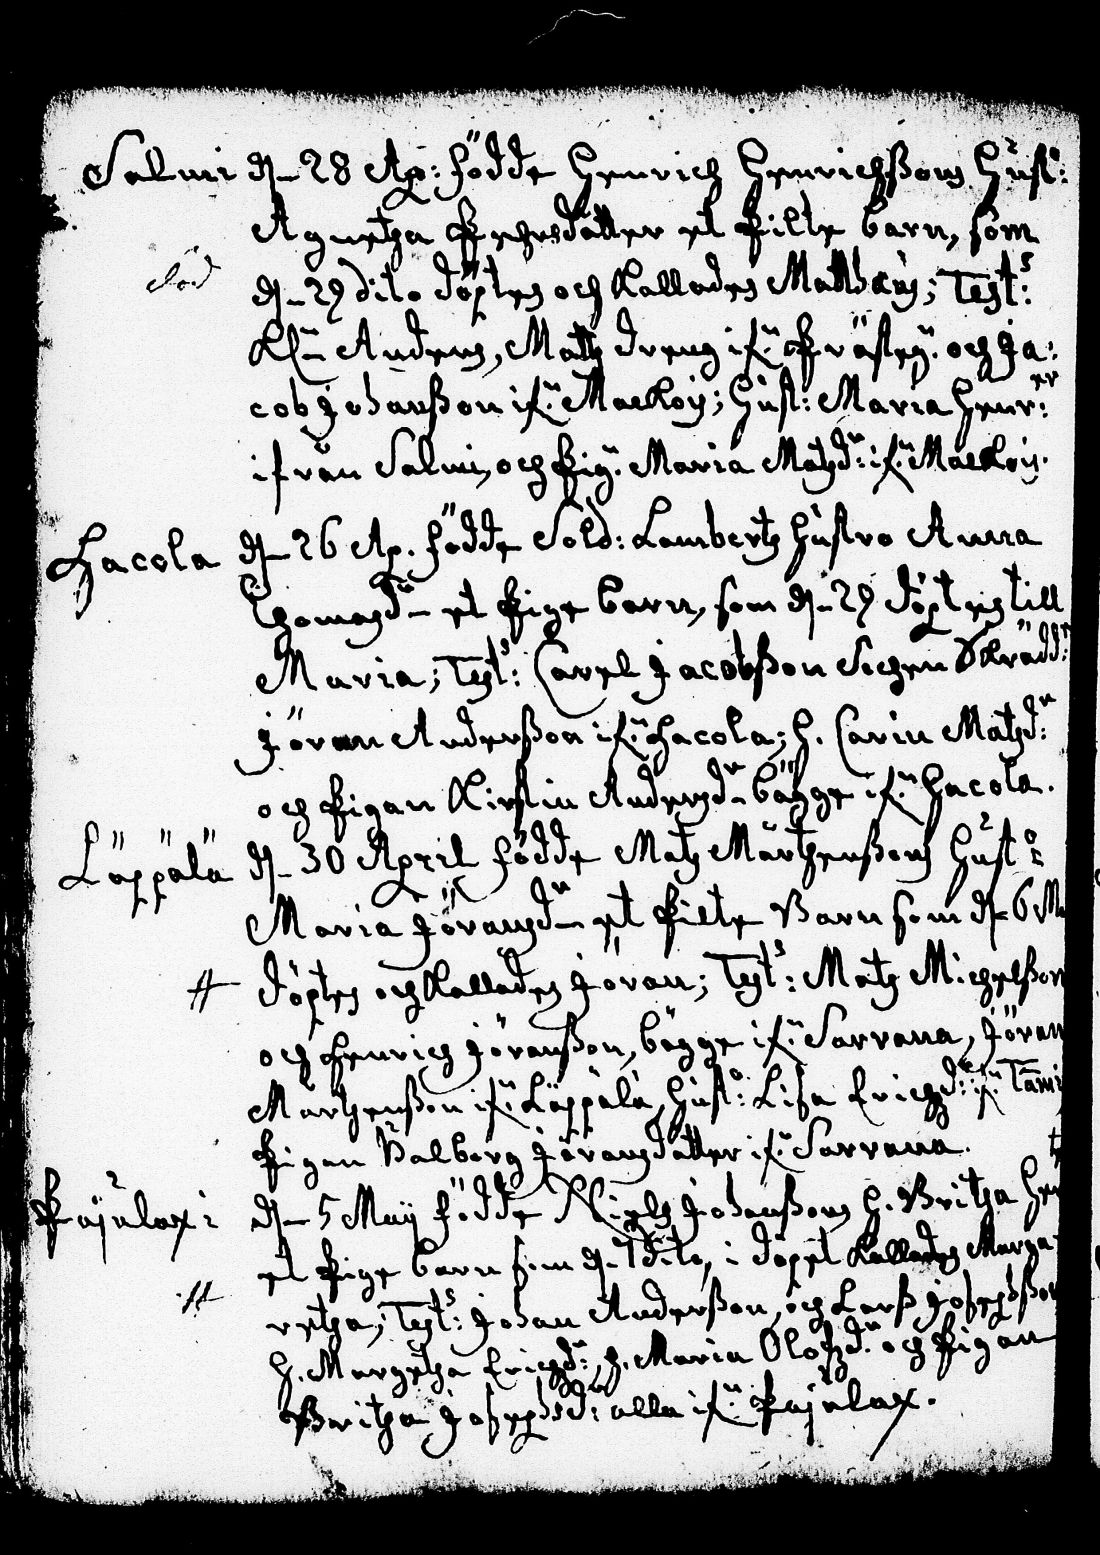 Salmi dn 28 Ap: födde Henrich Henrichßons Hust:
Agnetha Pehrsdotter et Pilte barn, som
död
dn 29 dito döptes och kallades Matthæus; Test:s
Kl:n Anders, Matz dreng if:n Präste g: och Ja:
cob Johanßon if:n Maekoij; Hust: Maria Henr:er
ifrån Salmi, och Pig: Maria Matzd:r if:n Maekoij.
Hacola dn 26 Ap. födde Sold: Lambertz Hustro Anna
Thomasd:r et Pige barn, som dn 29 döptes till
Maria; Test:s Carel Jacobßon Sochen Skrädd:r
Jöran Anderßon if:n Hacola; H. Carin Matzd:r
och Pigan Kirstin Andersd:r bägge if:n Hacola.
Läppälä dn 30 April födde Matz Mårthenßons Hust:o
Maria Jöransd:r et Pilte Barn som dn 6 Ma
döptes och Kallades Jöran; Test:s Matz Michelßon
och Henrich Jöranßon, bägge if:n Sarrana, Jöran
Mårthenßon if:n Läppälä, Hust:o Lisa Erichzd:r if:n Tami
Pigan Valborg Jöransdotter if:n Sarrana.
Pajulax: dn 5 Maij födde Niels Johanßons H. Britha Hen
et Pige barn som dn 7 dito, i döpet Kallades Marga
retha; Test:s Johan Anderßon, och Larß Josephßon
H. Margetha Erichzd:r, H. Maria Olofzd:r och Pigan
Britha Josephsd:r alla if:n Pajulax.